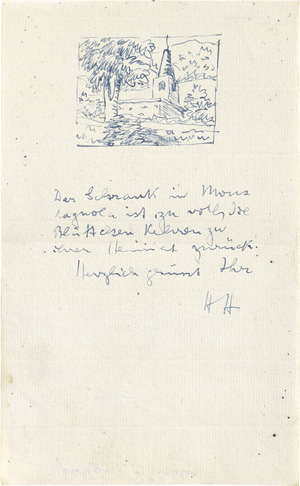 Der Schrank in Mon=
tagnola ist zu voll, die
Blätter kehren zu
ihrer Heimat zurück.
Herzlich grüsst Ihr
HH